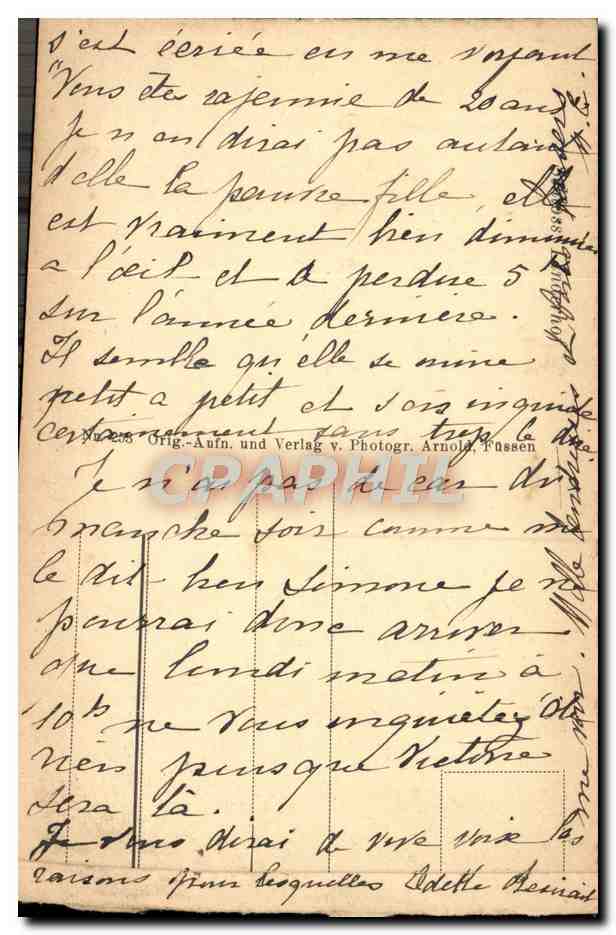 s'est écriée en me voyant
"Vous etes rajeunie de 20 ans
Je n'en dirai pas autant
d'elle la pauvre fille, elle
est vraiment bien diminuée
a l'œil et a perdue 5
sur l'année dernière.
Il semble qu'elle se mine
petit a petit et s'inquiete
certainement sans trop le dire
Orig.-Aufn. und Verlag v. Photogr. Arnold, Füssen
CRAPHIL
Je n'ai pas de car di
manche soir comme me
le dit bien Simone je ne
pourrai donc arriver
que lundi matin à
10h ne vous inquiétez de
rien puisque Victorine
sera là.
Je vous dirai de vive voix les
raisons pour lesquelles Odette
me voir. Melle